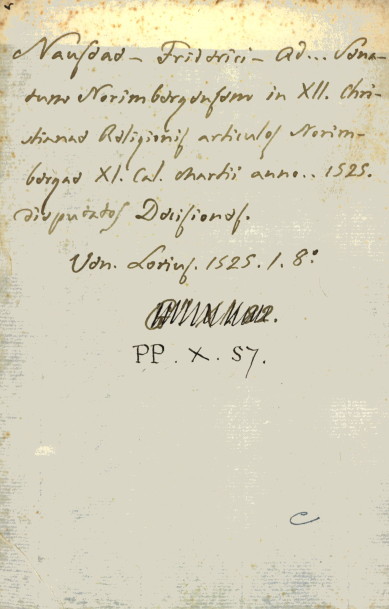 Nauseae - Friderici - Ad... Sena-
tum Norimbergensem in XII. Chri-
stianae Religionis articulos Norim-
bergae XI. Cal. Martii anno.. 1525.
disputatos Decisiones.
Ven. Lorius. 1525. 1. 8º
PP. X. 57.
C